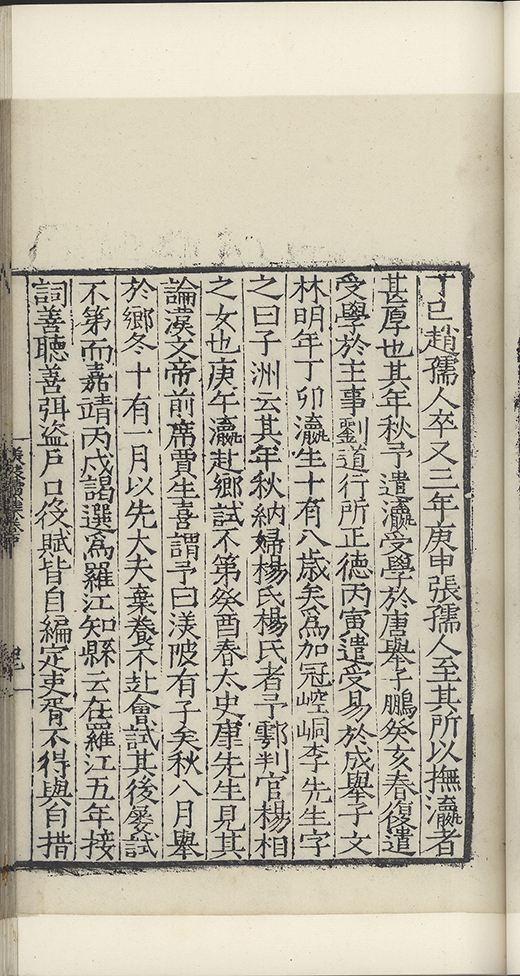 丁巳趙孺人卒又三年庚申張孺人至其所以撫瀛者
甚厚也其年秋予遣瀛受學於唐舉子鵬癸亥春復遣
受學於主事劉道行所正德丙寅遣受易於成舉子文
林明年丁卯瀛生十有八歲矣爲加冠崆峒李先生字
之曰子洲云其年秋納婦楊氏楊氏者予鄠判官楊相
之女也庚午瀛赴鄉試不第癸酉春太史康先生見其
論漢文帝前席賈生喜謂予曰渼陂有子矣秋八月舉
於鄉冬十有一月以先大夫棄養不赴會試其後屢試
不第而嘉靖丙戌謁選爲羅江知縣云在羅江五年接
詞善聽善弭盜戶口役賦皆自編定吏胥不得與自措